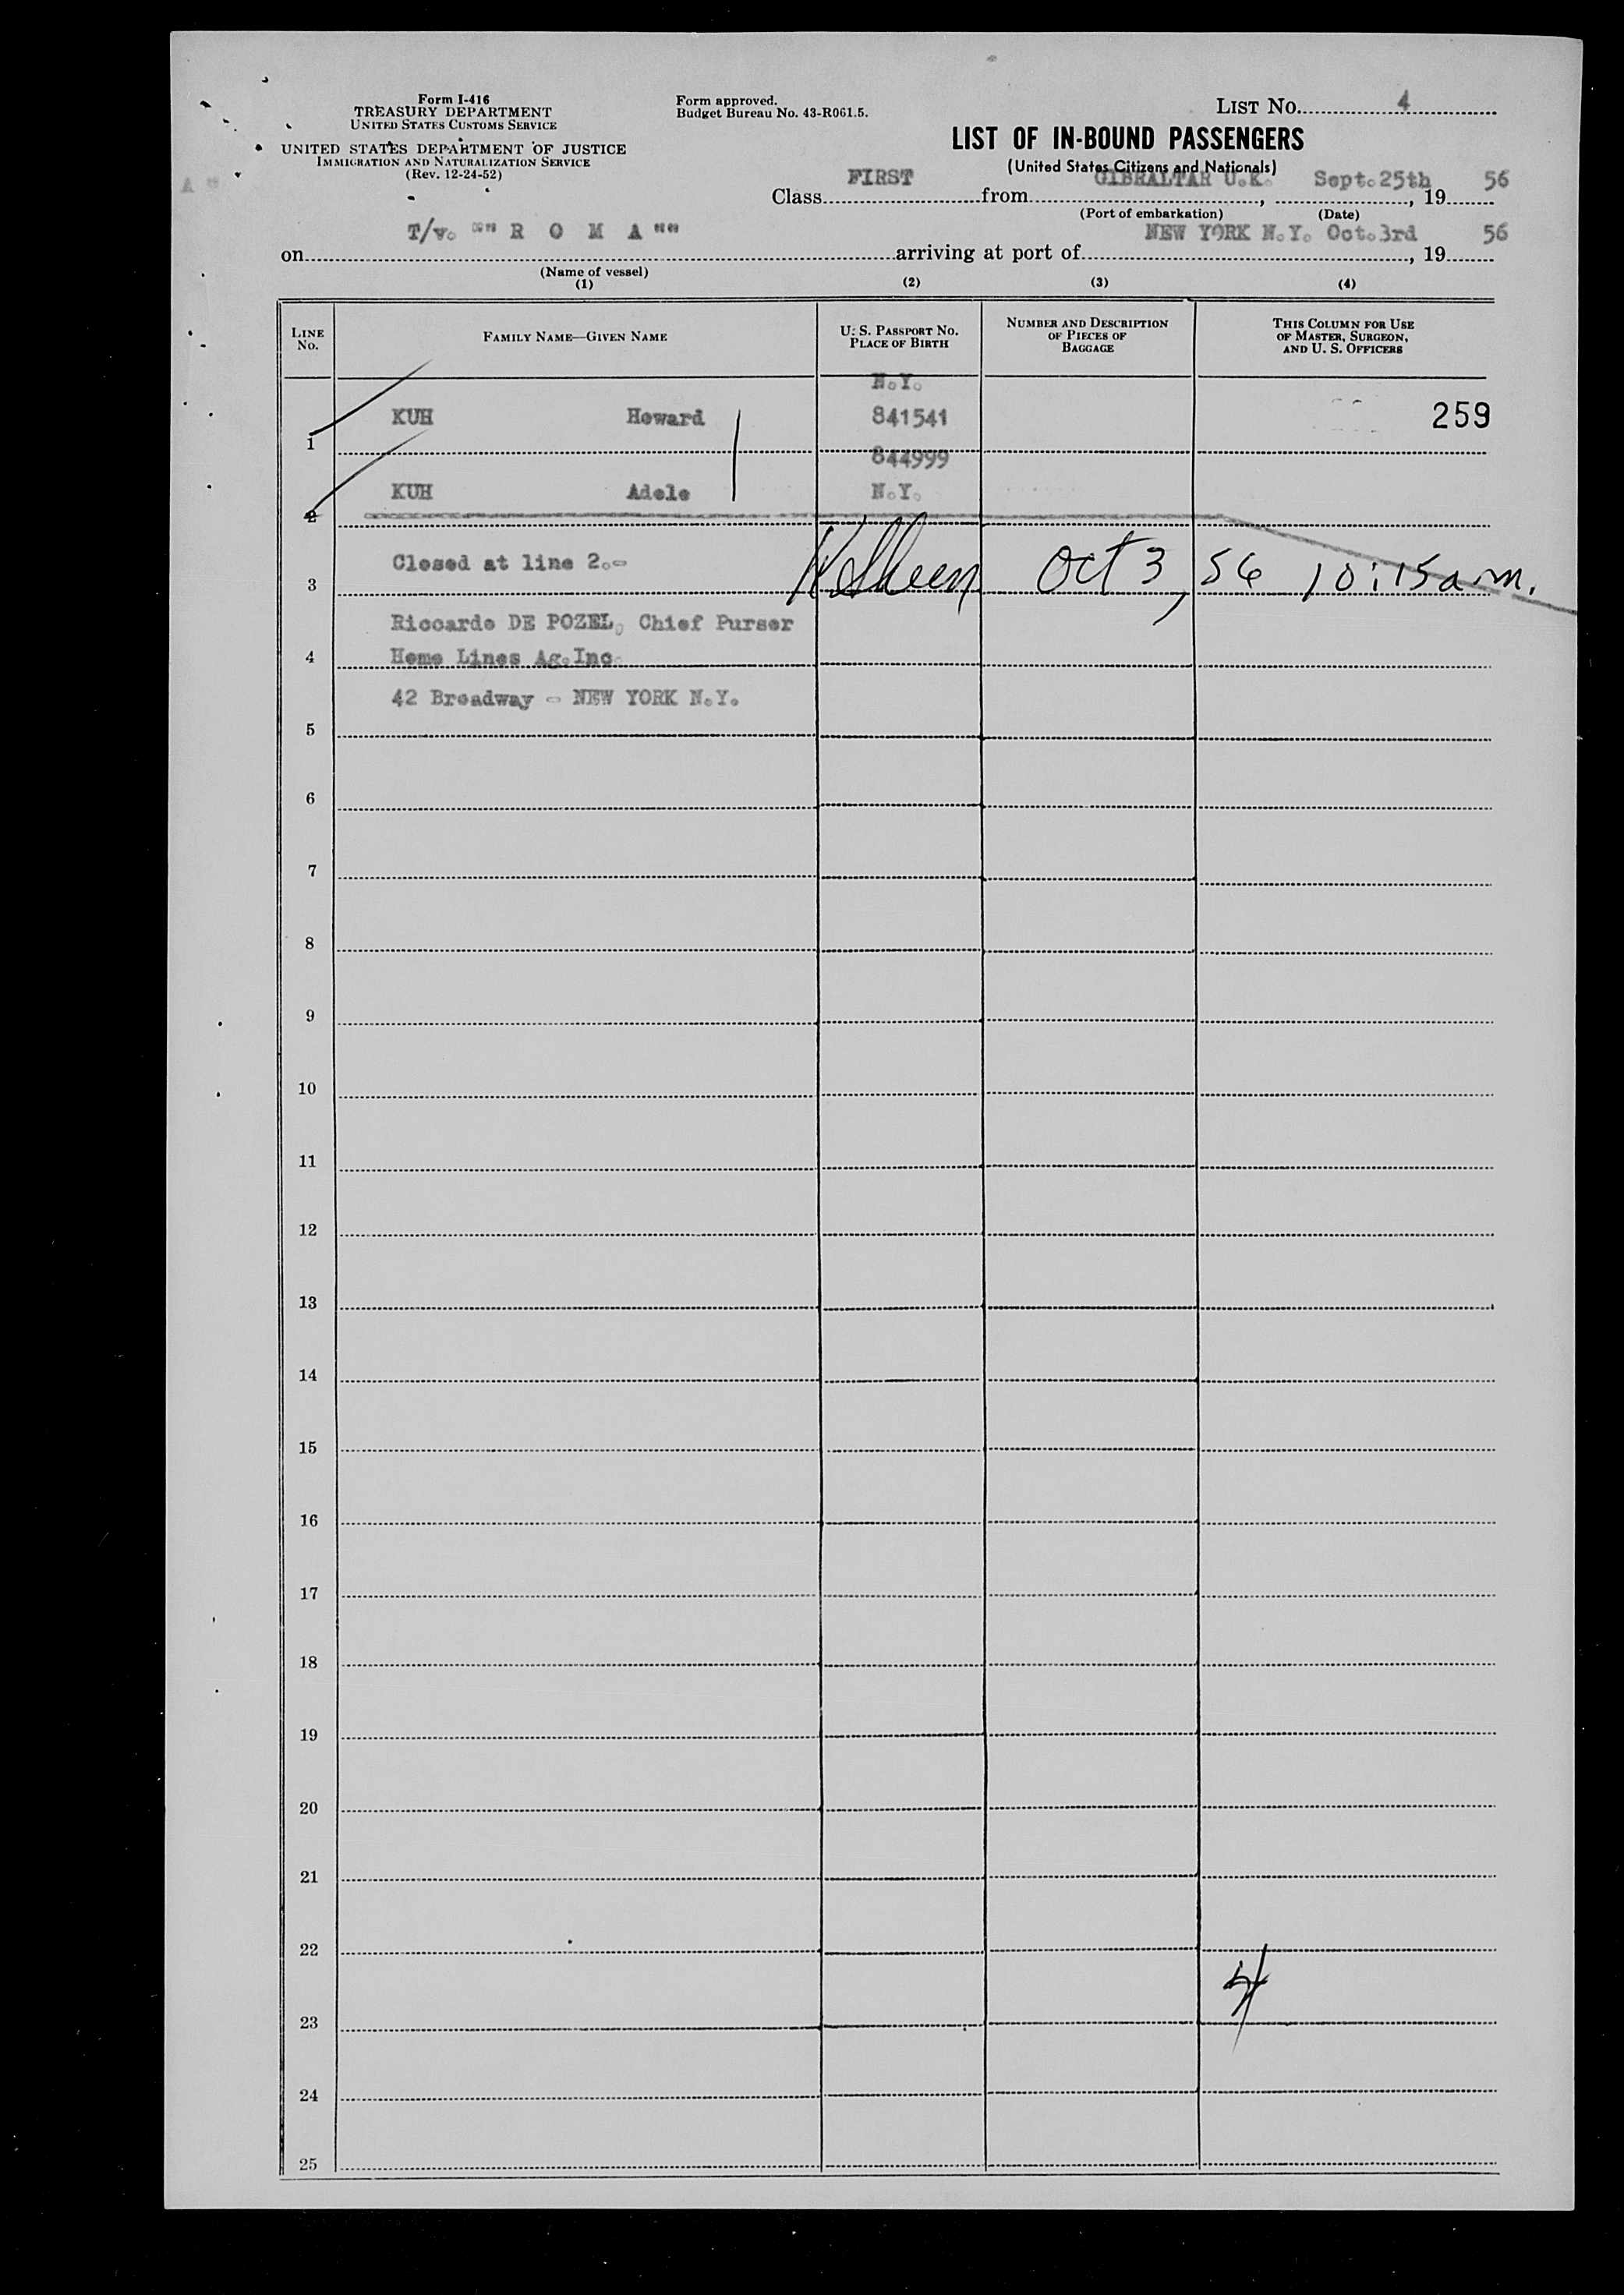 Form I-416
TREASURY DEPARTMENT
UNITED STATES CUSTOMS SERVICE
UNITED STATES DEPARTMENT OF JUSTICE
IMMIGRATION AND NATURALIZATION SERVICE
(Rev. 12-24-52)
Form approved.
Budget Bureau No. 43-R061.5.
LIST NO. 4
LIST OF IN-BOUND PASSENGERS
(United States Citizens and Nationals)
A "
Class FIRST from GIBRALTAR U.K., Sept.25th, 19 56
(Port of embarkation) (Date)
on T/v. "" R O M A "" arriving at port of NEW YORK N.Y. Oct.3rd, 19 56
(Name of vessel)
(1) (2) (3) (4)
LINE No. FAMILY NAME—GIVEN NAME U. S. PASSPORT NO. PLACE OF BIRTH NUMBER AND DESCRIPTION OF PIECES OF BAGGAGE THIS COLUMN FOR USE OF MASTER, SURGEON, AND U. S. OFFICERS
N.Y.
1 KUH Howard 841541 259
844999
2 KUH Adele N.Y.
3 Closed at line 2.- Oct 3, 56 10:15 a.m.
Riccardo DE POZEL, Chief Purser
4 Home Lines Ag.Inc.
42 Broadway - NEW YORK N.Y.
5
6
7
8
9
10
11
12
13
14
15
16
17
18
19
20
21
22
4
23
24
25